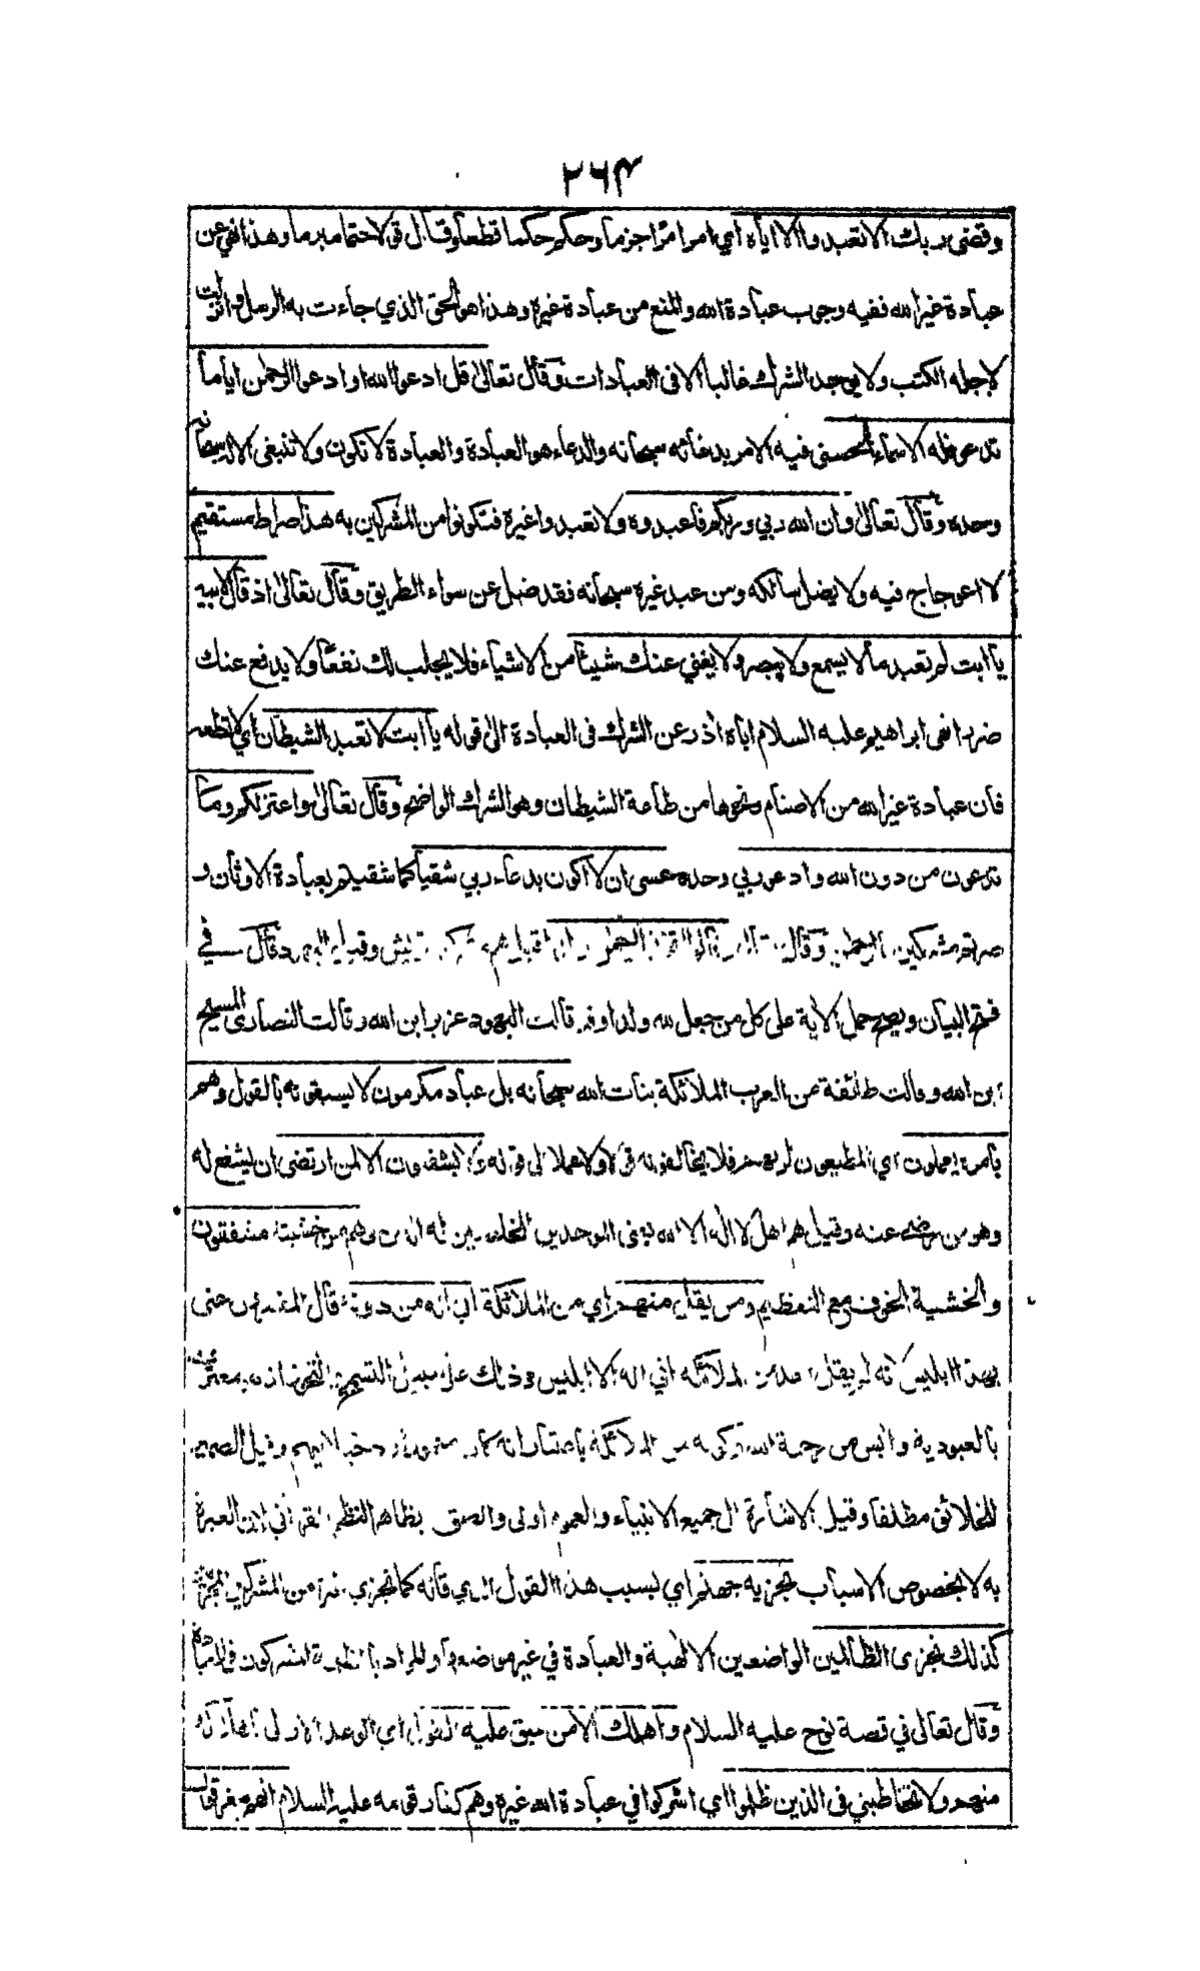 ٢٦٤
وقضى ربك الا تعبدوا الا اياه اي امر امرا جزما وحكم حكما قطعا وقال قولا حتما مبرما وهذا نهي عن
عبادة غير الله ففيه وجوب عبادة الله والمنع من عبادة غيره وهذا هو الحق الذي جاءت به الرسل وانزلت
لاجله الكتب ولا يوجد الشرك غالبا الا فى العبادات وقال تعالى قل ادعوا الله او ادعوا الرحمن اياما
تدعوا فله الاسماء الحسنى فيه الامر بدعائه سبحانه والدعاء هو العبادة والعبادة لا تكون ولا تنبغى الا لله سبحانه
وحده وقال تعالى وان الله ربي وربكم فاعبدوه ولا تعبدوا غيره فتكونوا من المشركين به هذا صراط مستقيم
لا اعوجاج فيه ولا يضل سالكه ومن عبد غيره سبحانه فقد ضل عن سواء الطريق وقال تعالى اذ قال لابيه
يا ابت لم تعبد ما لا يسمع ولا يبصر ولا يغني عنك شيئا من الاشياء فلا يجلب لك نفعا ولا يدفع عنك
ضررا نهى ابراهيم عليه السلام اباه آذر عن الشرك فى العبادة الى قوله يا ابت لا تعبد الشيطان اي لا تطعه
فان عبادة غير الله من الاصنام ونحوها من طاعة الشيطان وهو الشرك الواضح وقال تعالى واعتزلكم وما
تدعون من دون الله وادعو ربي وحده عسى ان لا اكون بدعاء ربي شقيا كما شقيتم بعبادة الاوثان و
صرتم مشركين الرحمن وقال وقيل اليهود قال في
فتح البيان ويصح حمل الآية على كل من جعل لله ولدا وقد قالت اليهود عزير ابن الله وقالت النصارى المسيح
ابن الله وقالت طائفة من العرب الملائكة بنات الله سبحانه بل عباد مكرمون لا يسبقونه بالقول وهم
بامره يعملون اي المطيعون لربهم فلا يخالفونه قولا ولا عملا الى قوله ولا يشفعون الا لمن ارتضى ان يشفع له
وهو من رضي عنه وقيل هم اهل لا اله الا الله يعني الموحدين المخلصين لله وهم من خشيته مشفقون
والخشية الخوف مع التعظيم ومن يقل منهم اي من الملائكة اني اله من دونه قال المفسرون عنى
بهذا ابليس لانه لم يقل احد من الملائكة اني اله الا ابليس وذلك على سبيل
بالعبودية وايس من رحمة الله الملائكة باعتبار انه كان وقيل الضمير
للخلائق مطلقا وقيل الاشارة الى جميع الانبياء والعموم اولى والصق بظاهر النظم القرآني لان العبرة
به لا بخصوص الاسباب نجزيه جهنم اي بسبب هذا القول الذي قاله كما نجزي غيره من المشركين
كذلك نجزى الظالمين الواضعين الالهية والعبادة في غير موضعها والمراد بالظلمة المشركون فى العبادة
وقال تعالى في قصة نوح عليه السلام واهلك الا من سبق عليه القول اي
منهم ولا تخاطبني فى الذين ظلموا اي اشركوا في عبادة الله غيره وهم كفار قومه عليه السلام انهم مغرقون